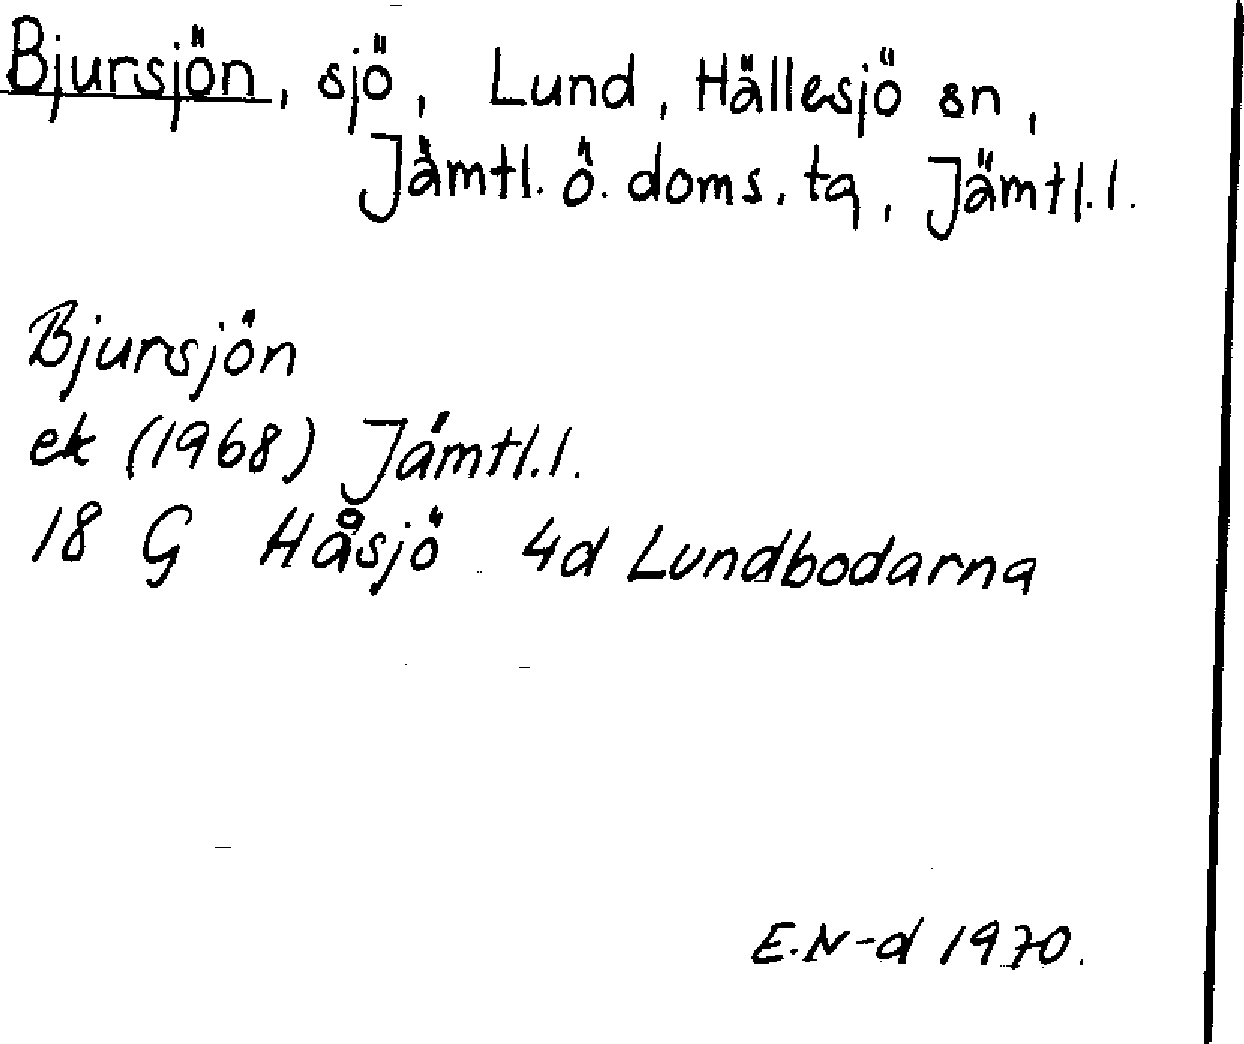 Bjursjön, sjö, Lund, Hällesjö sn,
Jämtl. ö. doms. tg, Jämtl. l.
Bjursjön
ek (1968) Jämtl. l.
18 G Håsjö 4d Lundbodarna
E.N-d 1970.